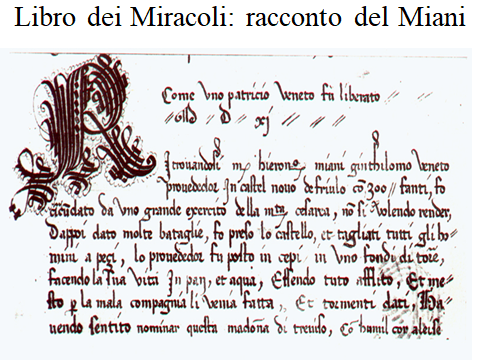 Libro dei Miracoli: racconto del Miani
Come vno patricio Veneto fù liberato
D xi
Ritrouandosi mͫ hierony miani ginthilomo Veneto
prouededor In castel nouo de friulo cō 300 // fanti, fo
circūdato da vno grande exercito della mͭᵃ cesarea, nō si Volendo render,
Dappoi dato molte bataglie, fo preso lo castello, et tagliati tutti gli ho
mini a pezi, lo prouededor fu posto in cepi in vno fondo di torē,
facendo la sua vita In pan, et aqua, Essendo tuto afflito, Et me
sto p la mala compagnia li venia fatta, Et tormenti dati, Ha
uendo sentito nominar questa madōna di treuiso, Cō humil cor